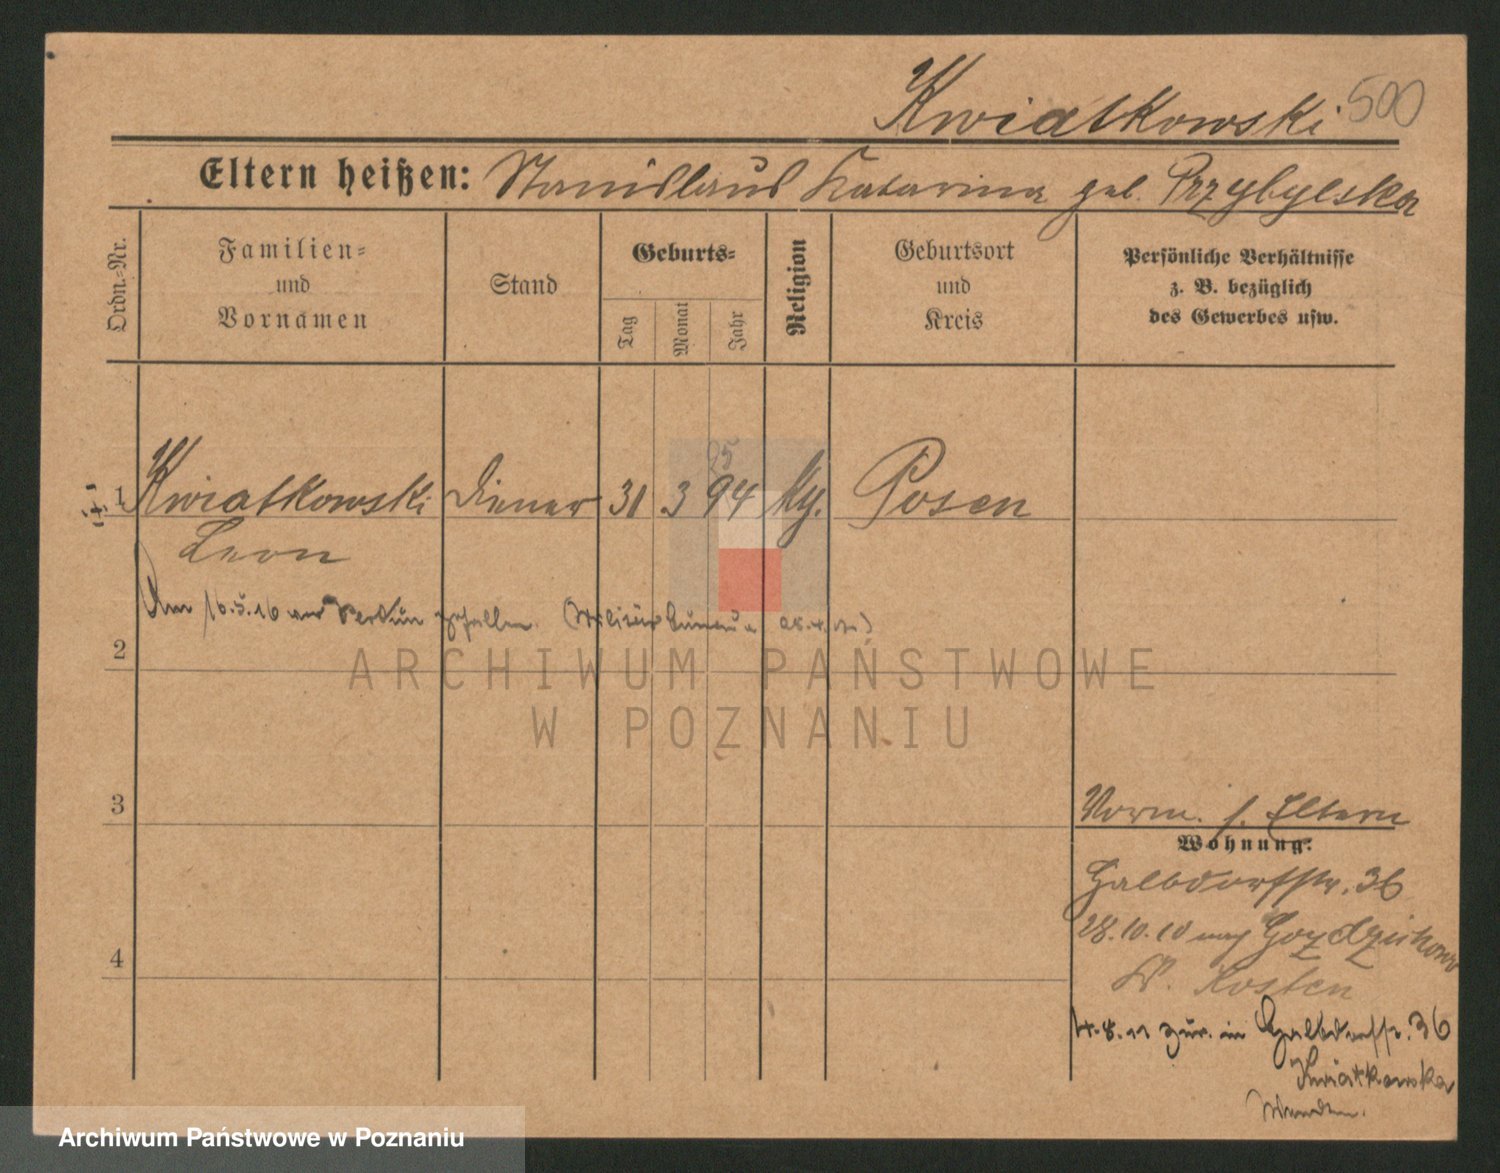 Kwiatkowski 500
Eltern heißen: Stanislaus Katarina geb. Przybylska
Ordn.-Nr.
Familien-
und
Vornamen
Stand
Geburts-
Tag
Monat
Jahr
Religion
Geburtsort
und
Kreis
Persönliche Verhältnisse
z. B. bezüglich
des Gewerbes usw.
25
1 Kwiatkowski Diener 31 3 94 Posen
Leon
Am 16.5.16 vor Verdun gefallen.
2
ARCHIWUM PAŃSTWOWE
W POZNANIU
3
Vorm. s. Eltern
Wohnung:
Halbdorfstr. 36
28.10.10 nach
4
K. Kosten
8.11 zur. in Halbdorfstr. 36
Kwiatkowska
Archiwum Państwowe w Poznaniu